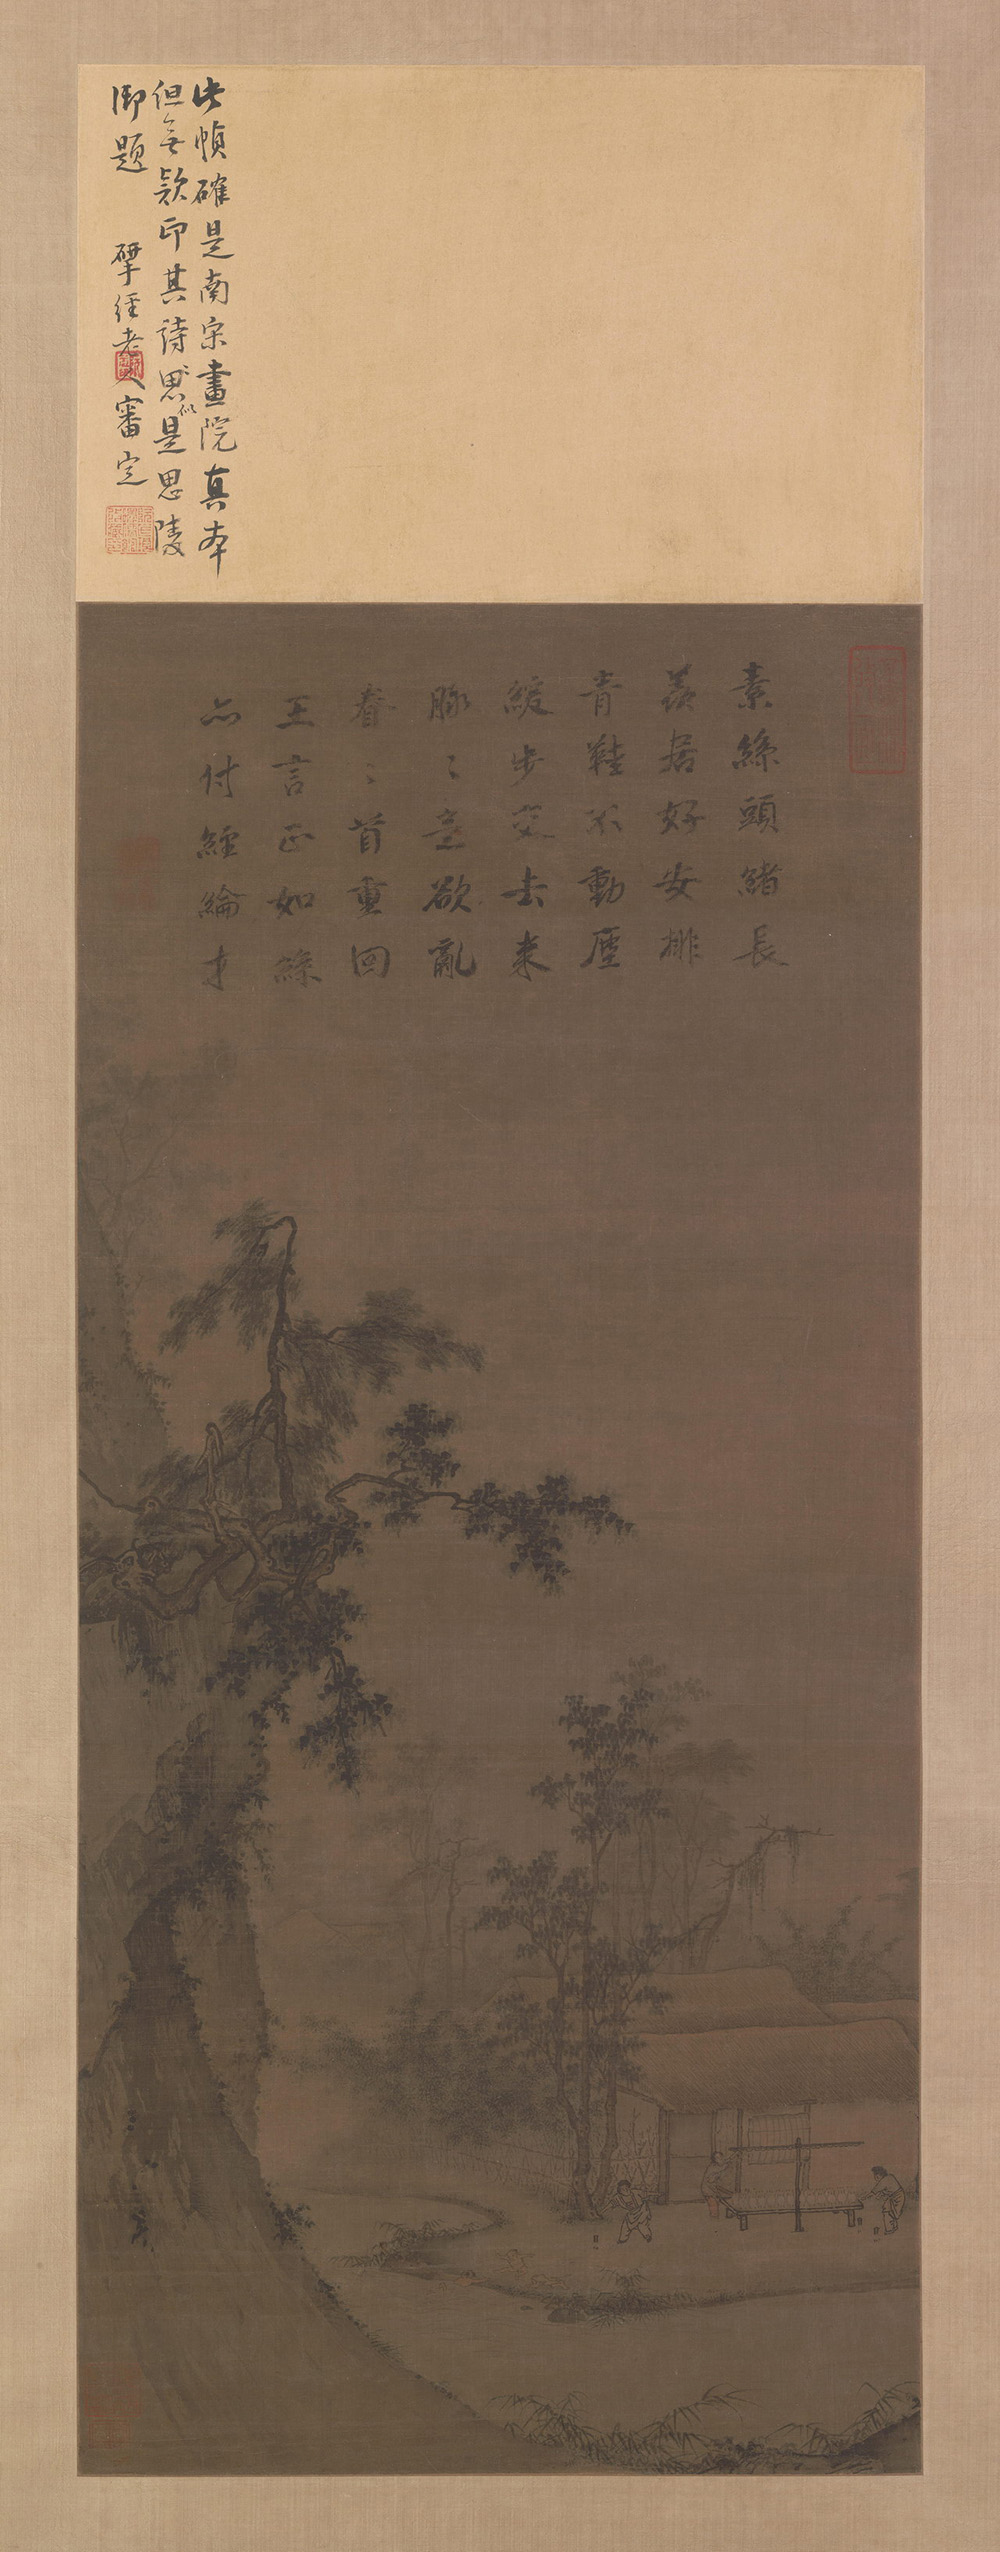 此幀確是南宋畫院真本
但無款印其詩思似是思陵
御題 揅經老人審定
素絲頭緒長
羨君好安排
青鞋不動塵
緩步交去來
脉〻意欲亂
眷〻首重回
王言正如絲
亦付經綸才